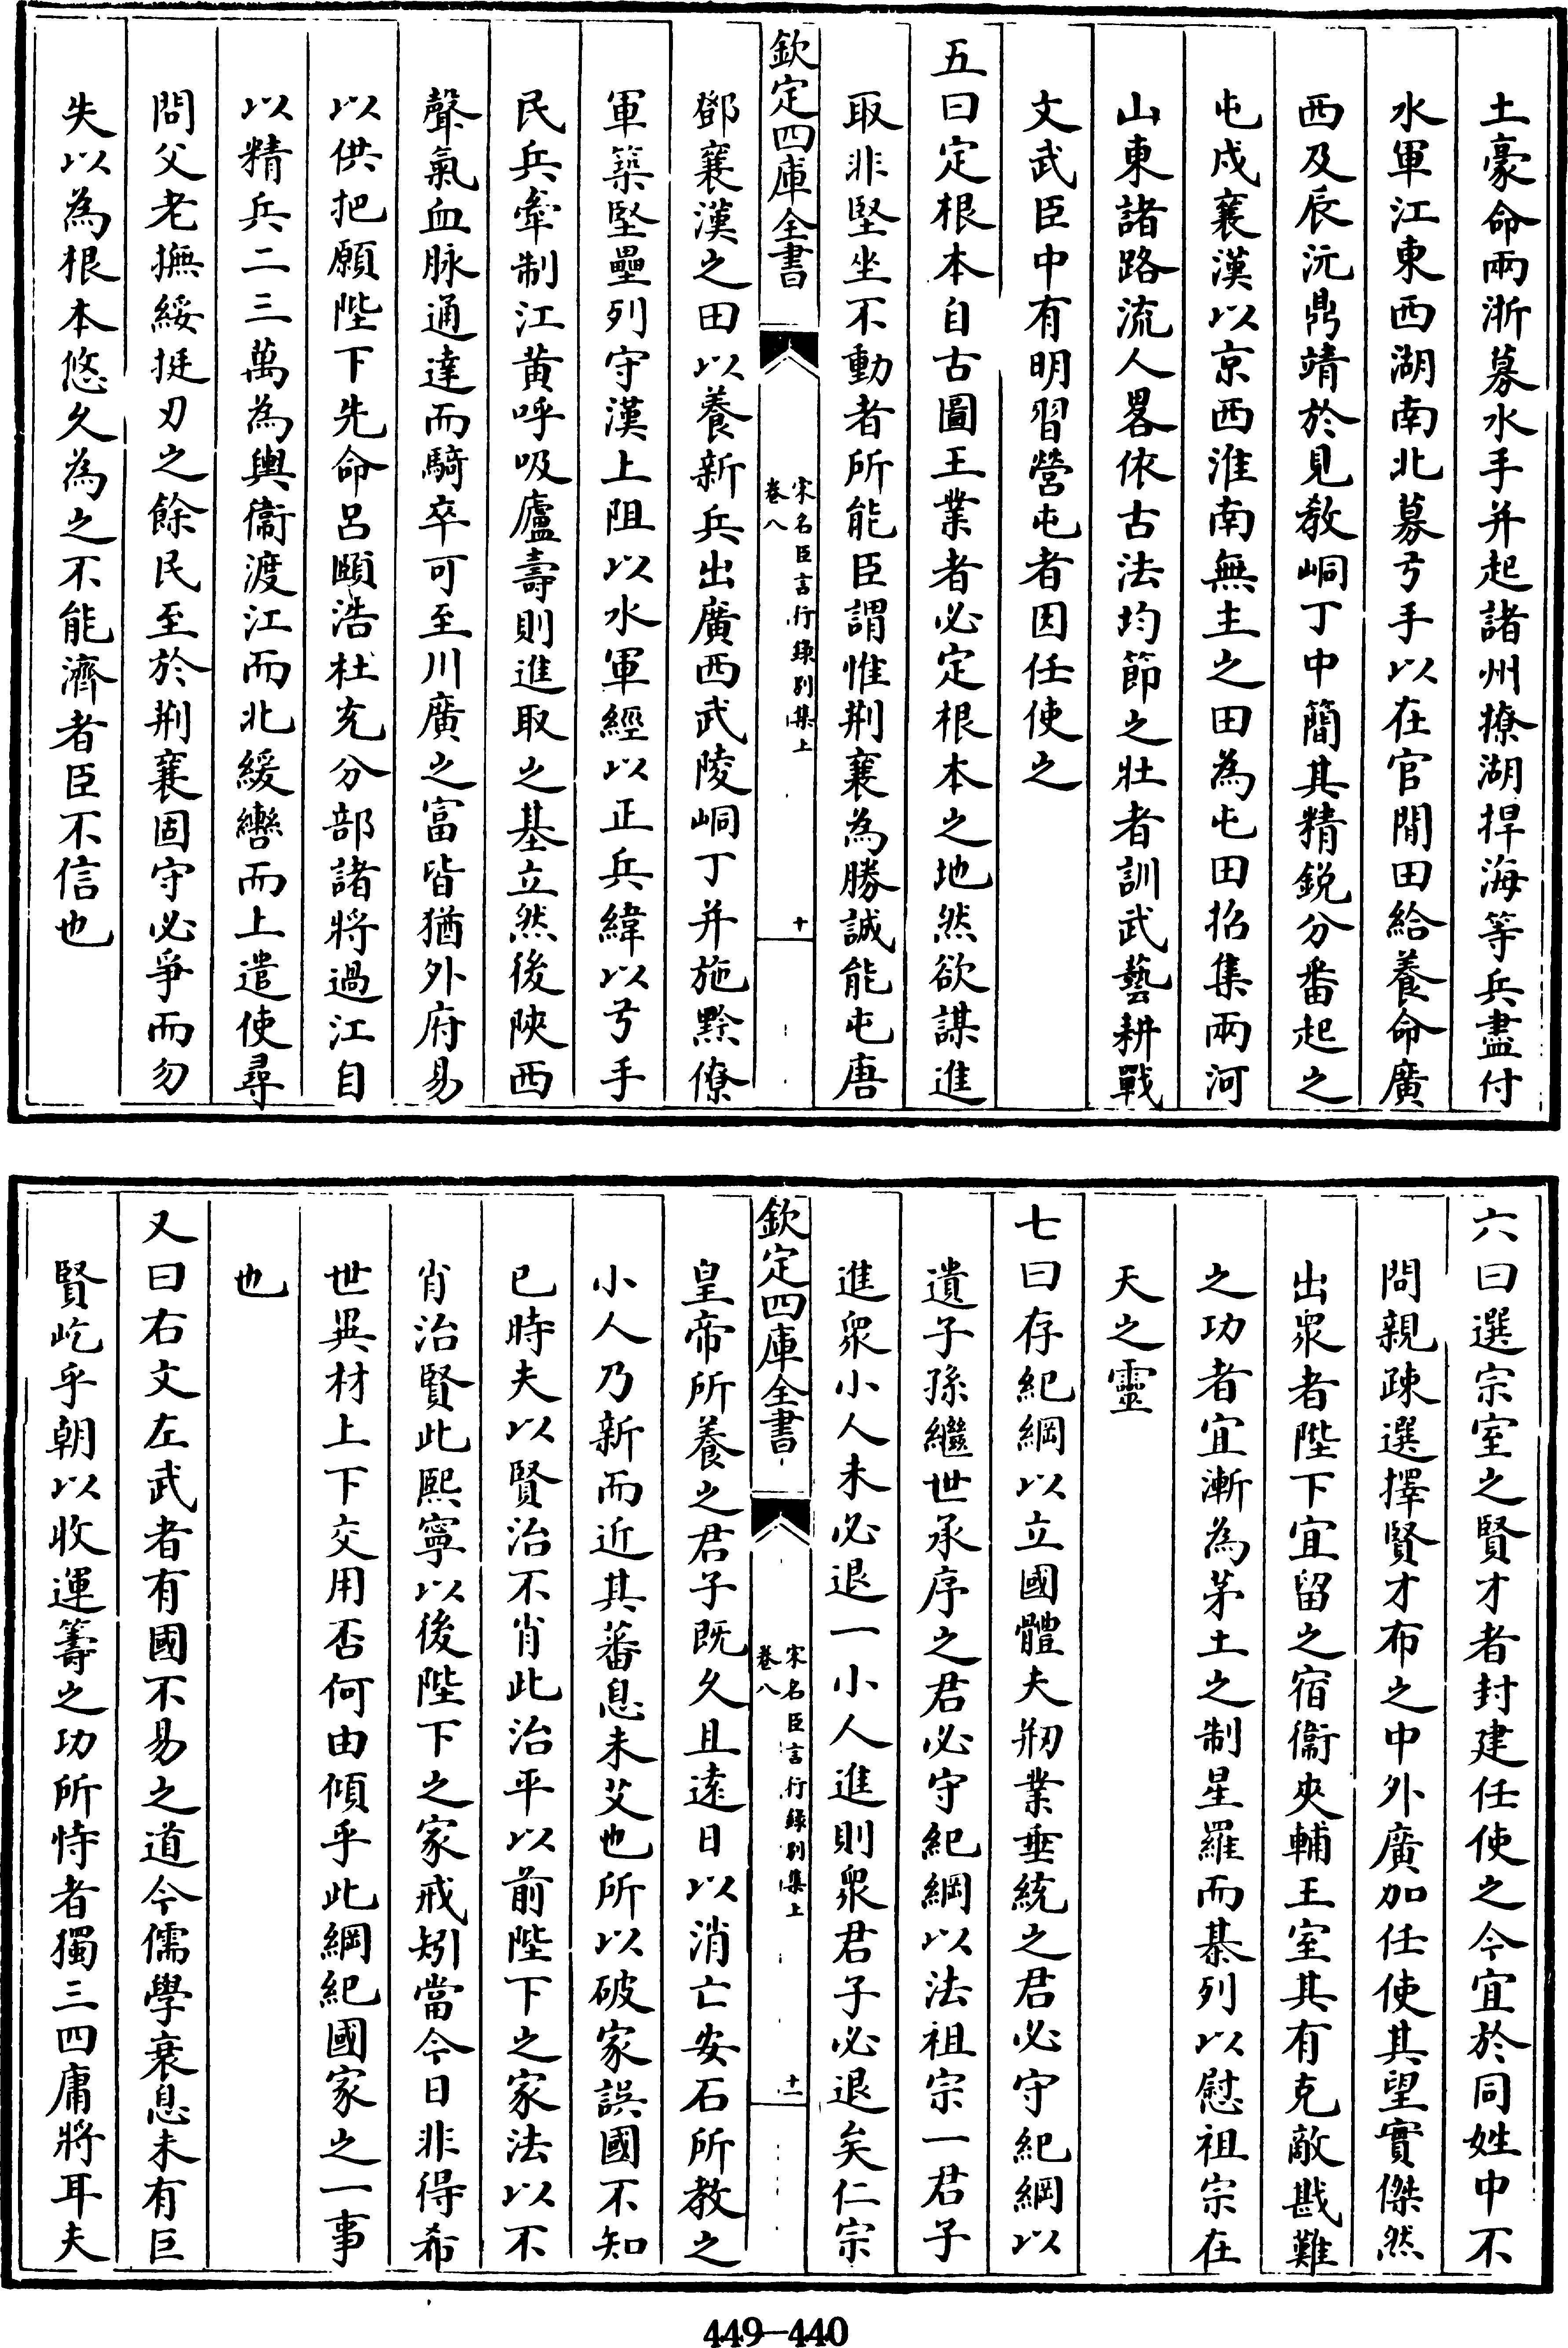 土豪命兩浙募水手并起諸州撩湖捍海等兵盡付
水軍江東西湖南北募弓手以在官閒田給養命廣
西及辰沅鼎靖於見教峒丁中簡其精銳分番起之
屯戍襄漢以京西淮南無主之田為屯田招集兩河
山東諸路流人畧依古法均節之壯者訓武藝耕戰
文武臣中有明習營屯者因任使之
五曰定根本自古圖王業者必定根本之地然欲謀進
取非堅坐不動者所能臣謂惟荆襄為勝誠能屯唐
欽定四庫全書
宋名臣言行録別集上
卷八
十
鄧襄漢之田以養新兵出廣西武陵峒丁并施黔僚
軍築堅壘列守漢上阻以水軍經以正兵緯以弓手
民兵牽制江黄呼吸廬壽則進取之基立然後陜西
聲氣血脉通達而騎卒可至川廣之富皆猶外府易
以供把願陛下先命呂頤浩杜充分部諸將過江自
以精兵二三萬為輿衞渡江而北緩轡而上遣使尋
問父老撫綏挺刃之餘民至於荆襄固守必爭而勿
失以為根本悠久為之不能濟者臣不信也
六曰選宗室之賢才者封建任使之今宜於同姓中不
問親疎選擇賢才布之中外廣加任使其望實傑然
出衆者陛下宜留之宿衞夾輔王室其有克敵戡難
之功者宜漸為茅土之制星羅而碁列以慰祖宗在
天之靈
七曰存紀綱以立國體夫剏業垂統之君必守紀綱以
遺子孫繼世承序之君必守紀綱以法祖宗一君子
進衆小人未必退一小人進則衆君子必退矣仁宗
欽定四庫全書
宋名臣言行録別集上
卷八
十一
皇帝所養之君子既久且逺日以消亡安石所教之
小人乃新而近其蕃息未艾也所以破家誤國不知
已時夫以賢治不肖此治平以前陛下之家法以不
肖治賢此熙寧以後陛下之家戒矧當今日非得希
世異材上下交用否何由傾乎此綱紀國家之一事
也
又曰右文左武者有國不易之道今儒學衰息未有巨
賢屹乎朝以收運籌之功所恃者獨三四庸將耳夫
449—440